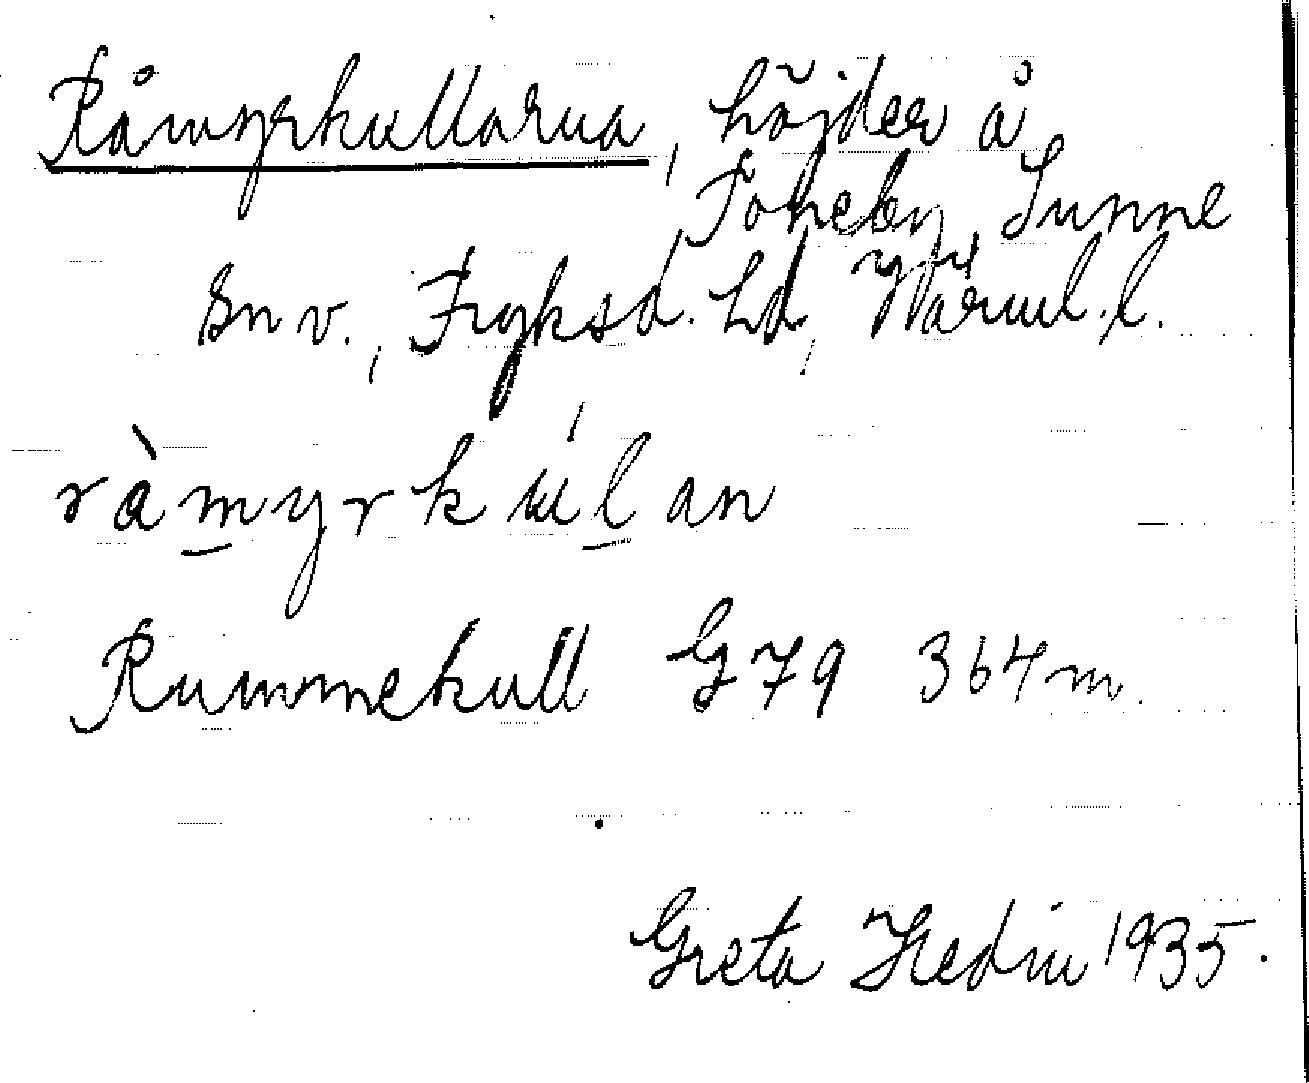 Råmyrkullarna, höjder å
Toneby, Sunne
sn v., Fryksd. hd, Värml. l.
ràmyrkúlan
Rummekull G79 364m.
Greta Hedin 1935.